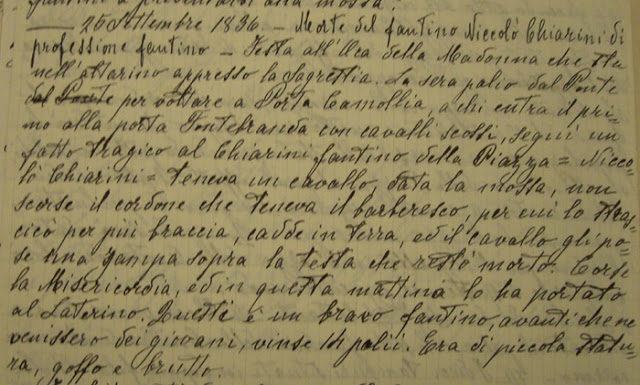 fantini a presentarsi alla mossa.
— 25 Settembre 1836. – Morte del fantino Niccolò Chiarini di
professione fantino – Festa all'Oca della Madonna che sta
nell'altarino appresso la Sagrestia. La sera palio dal Ponte
dal Ponte per voltare a Porta Camollia, a chi entra il pri-
mo alla porta Fontebranda con cavalli scossi, seguì un
fatto tragico al Chiarini fantino della Piazza = Nicco-
lò Chiarini = teneva un cavallo, data la mossa, non
scorse il cordone che teneva il barberesco, per cui lo stra-
cicò per più braccia, cadde in terra, ed il cavallo gli po-
se una zampa sopra la testa che restò morto. Corse
la Misericordia, ed in questa mattina lo ha portato
al Laterino. Questi è un bravo fantino, avanti che ne
venissero dei giovani, vinse palii. Era di piccola statu-
ra, goffo e brutto.